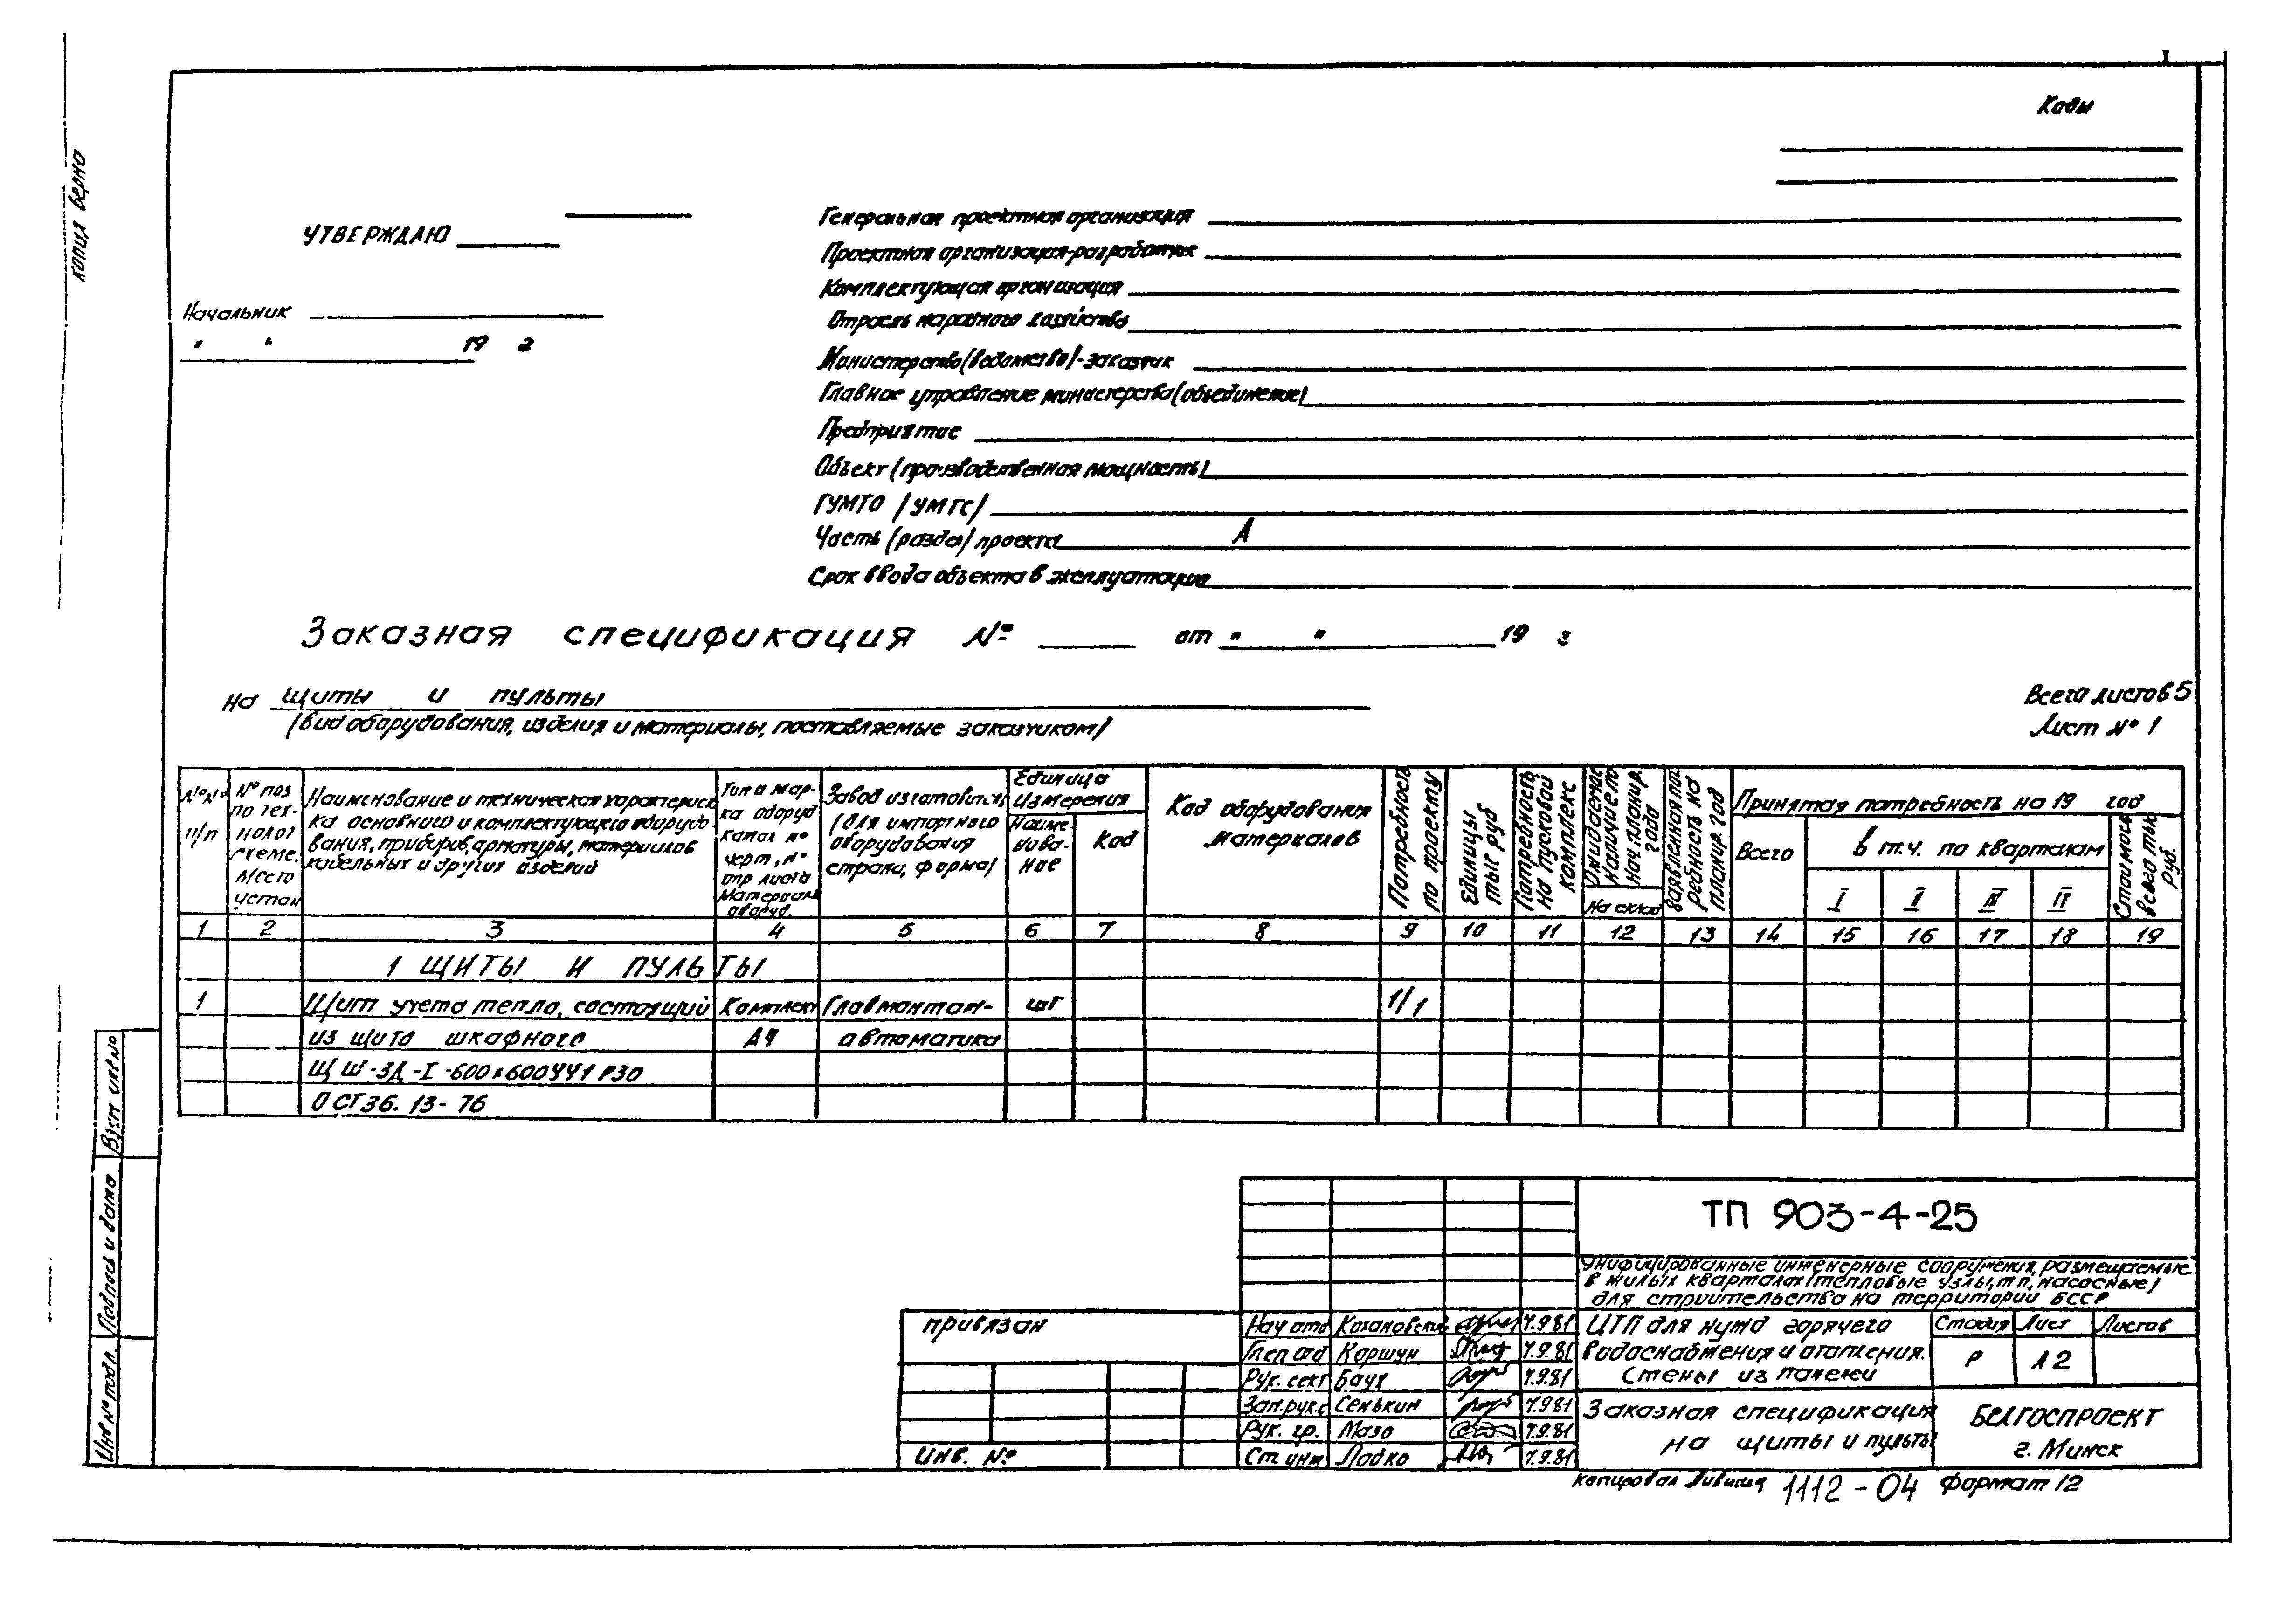 Коды
копия верна
УТВЕРЖДАЮ
Начальник
" " 19 г
Генеральная проектная организация
Проектная организация-разработчик
Комплектующая организация
Отрасль народного хозяйства
Министерство (ведомство)-заказчик
Главное управление министерства (объединение)
Предприятие
Объект (производственная мощность)
ГУМТО (УМТС)
Часть (раздел) проекта А
Срок ввода объекта в эксплуатацию
Заказная спецификация № от " " 19 г
на щиты и пульты
(вид оборудования, изделия и материалы, поставляемые заказчиком)
Всего листов 5
Лист № 1
№№ п/п
№ поз по технолог схеме. Место устан
Наименование и техническая характеристика основного и комплектующего оборудования, приборов, арматуры, материалов кабельных и других изделий
Тип и марка оборуд катал № черт, № опр листа Материал оборуд.
Завод изготовитель (для импортного оборудования страна, фирма)
Единица измерения
Наименование
Код
Код оборудования материалов
Потребность по проекту
Единицы тыс руб
Потребность на пусковой комплекс
Ожидаемое наличие на нач. планир. года
На склад
Заявленная потребность на планир. год
Принятая потребность на 19 год
Всего
в т.ч. по кварталам
I II III IV
Стоимость всего тыс руб.
1 2 3 4 5 6 7 8 9 10 11 12 13 14 15 16 17 18 19
1 ЩИТЫ И ПУЛЬТЫ
1 Щит учета тепла, состоящий Комплект Главмонтаж- шт 1/1
из щита шкафного А4 автоматика
ЩШ-ЗД-I-600х600УЧ1 Р30
ОСТ36.13-76
Взам инв №
Подпись и дата
Инв № подл.
ТП 903-4-25
Унифицированные инженерные сооружения, размещаемые
в жилых кварталах (тепловые узлы, тп, насосные)
для строительства на территории БССР
привязан
Инв. №
Нач отд Кохановский 7.9.81
Гл сп отд Коршун 7.9.81
Рук. сект Баух 7.9.81
Зам.рук.с Сенькин 7.9.81
Рук. гр. Мазо 7.9.81
Ст инж Ладко 7.9.81
ЦТП для нужд горячего
водоснабжения и отопления.
Стены из панелей
Стадия Лист Листов
Р А2
Заказная спецификация
на щиты и пульты
БЕЛГОСПРОЕКТ
г. Минск
Копировал 1112-04 Формат 12